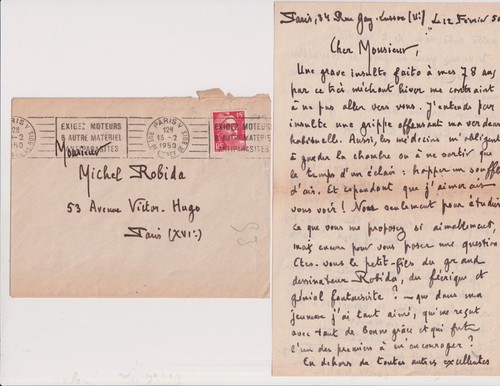 128
PARIS V
15-2
1950
EXIGEZ MOTEURS
& AUTRE MATERIEL
ANTIPARASITES
PARIS V
12H
15-2
1950
EXIGEZ MOTEURS
& AUTRE MATERIEL
ANTIPARASITES
Monsieur
Michel Robida
53 Avenue Victor-Hugo
Paris (XVIe)
Paris, 34 Rue Gay-Lussac (Ve) Le 12 Février 50
Cher Monsieur,
Une grave insulte faite à mes 78 ans
par ce très méchant hiver me contraint
à ne pas aller vers vous. J'entends par
insulte une grippe offensant ma verdeur
habituelle. Aussi, les médecins m'obligent
à garder la chambre ou à ne sortir que
le temps d'un éclair : happer un souffle
d'air. Et cependant que j'aimerais
vous voir ! Non seulement pour étudier
ce que vous me proposez si aimablement,
mais encore pour vous poser une question
Êtes-vous le petit-fils du grand
dessinateur Robida, du féerique et
génial fantaisiste ? - que dans ma
jeunesse j'ai tant aimé, qui me reçut
avec tant de bonne grâce et qui fut
l'un des premiers à m'encourager ?
En dehors de toutes autres excellentes